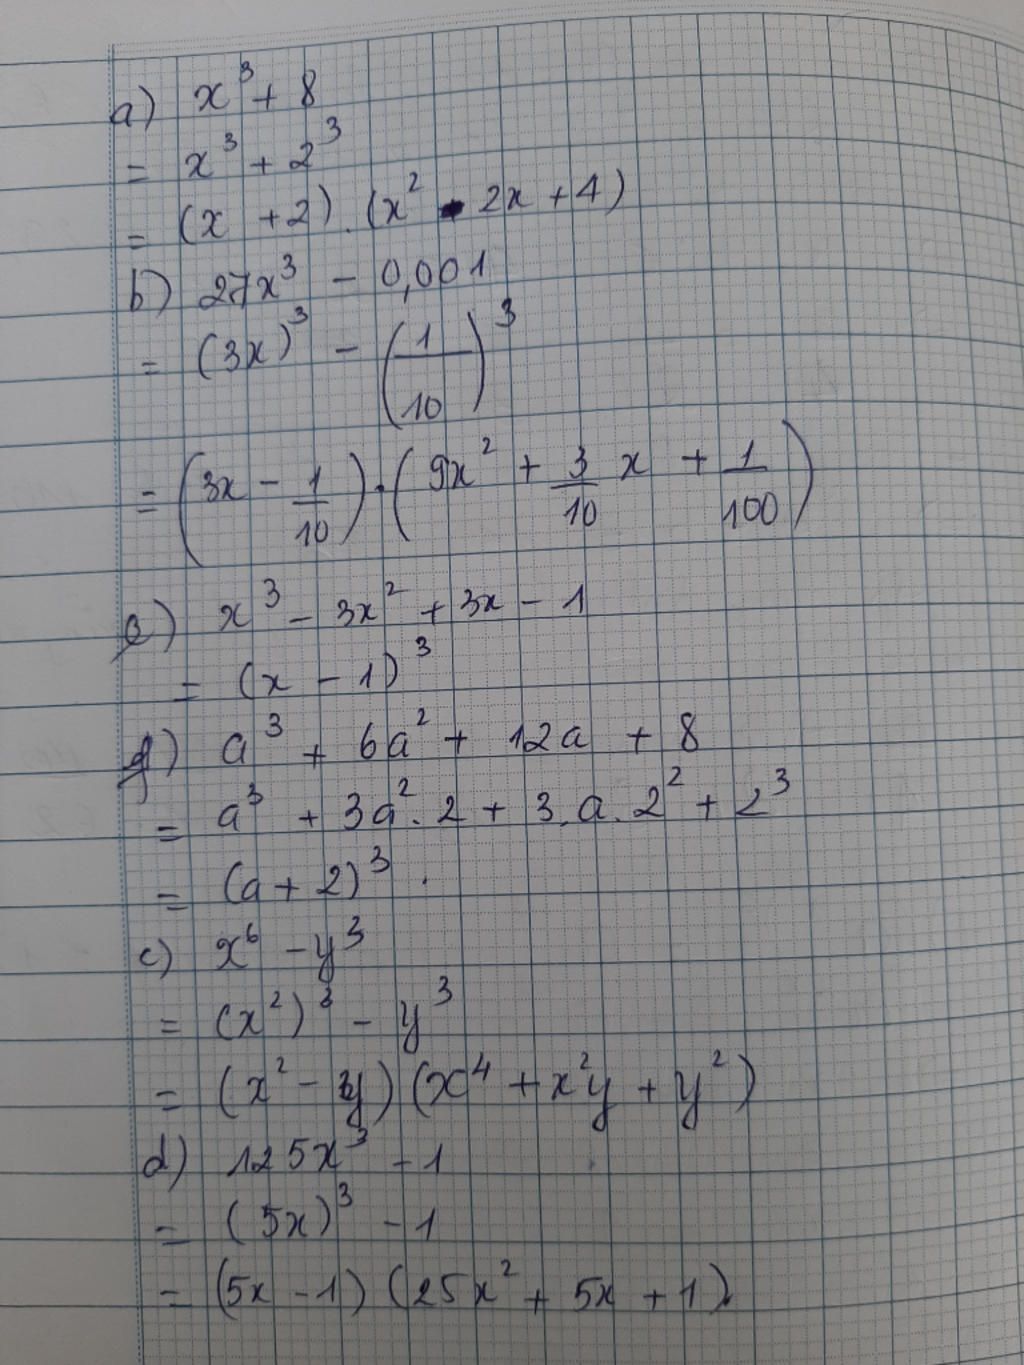 a) x³ + 8
= x³ + 2³
= (x + 2) . (x² - 2x + 4)
b) 27x³ - 0,001
= (3x)³ - (1/10)³
= (3x - 1/10) . (9x² + 3/10 x + 1/100)
e) x³ - 3x² + 3x - 1
= (x - 1)³
g) a³ + 6a² + 12a + 8
= a³ + 3a² . 2 + 3 . a . 2² + 2³
= (a + 2)³ .
c) x⁶ - y³
= (x²)³ - y³
= (x² - y) (x⁴ + x²y + y²)
d) 125x³ - 1
= (5x)³ - 1
= (5x - 1) (25x² + 5x + 1).